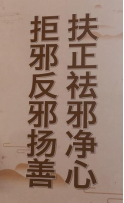 扶正祛邪净心
拒邪反邪扬善